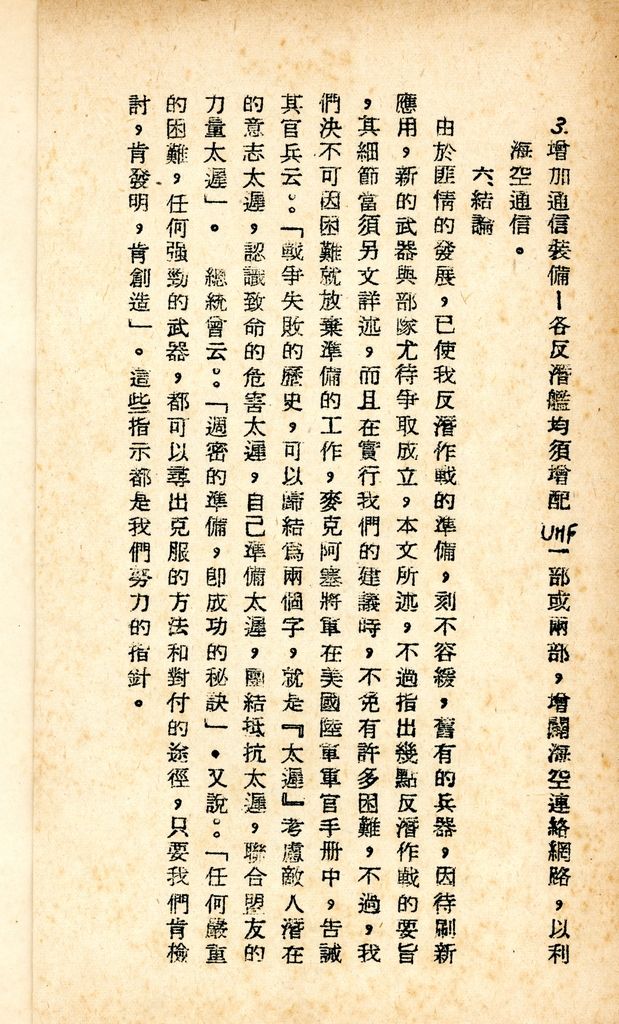 3.增加通信裝備—各反潛艦均須增配UHF一部或兩部，增闢海空連絡網路，以利
海空通信。
六、結論
由於匪情的發展，已使我反潛作戰的準備，刻不容緩，舊有的兵器，因待刷新
應用，新的武器與部隊尤待爭取成立，本文所述，不過指出幾點反潛作戰的要旨
，其細節當須另文詳述，而且在實行我們的建議時，不免有許多困難，不過，我
們決不可因困難就放棄準備的工作，麥克阿塞將軍在美國陸軍軍官手册中，告誡
其官兵云：「戰爭失敗的歷史，可以歸結爲兩個字，就是『太遲』考慮敵人潛在
的意志太遲，認識致命的危害太遲，自己準備太遲，團結抵抗太遲，聯合盟友的
力量太遲」。　總統曾云：「週密的準備，卽成功的秘訣」。又說：「任何嚴重
的困難，任何強勁的武器，都可以尋出克服的方法和對付的途徑，只要我們肯檢
討，肯發明，肯創造」。這些指示都是我們努力的指針。